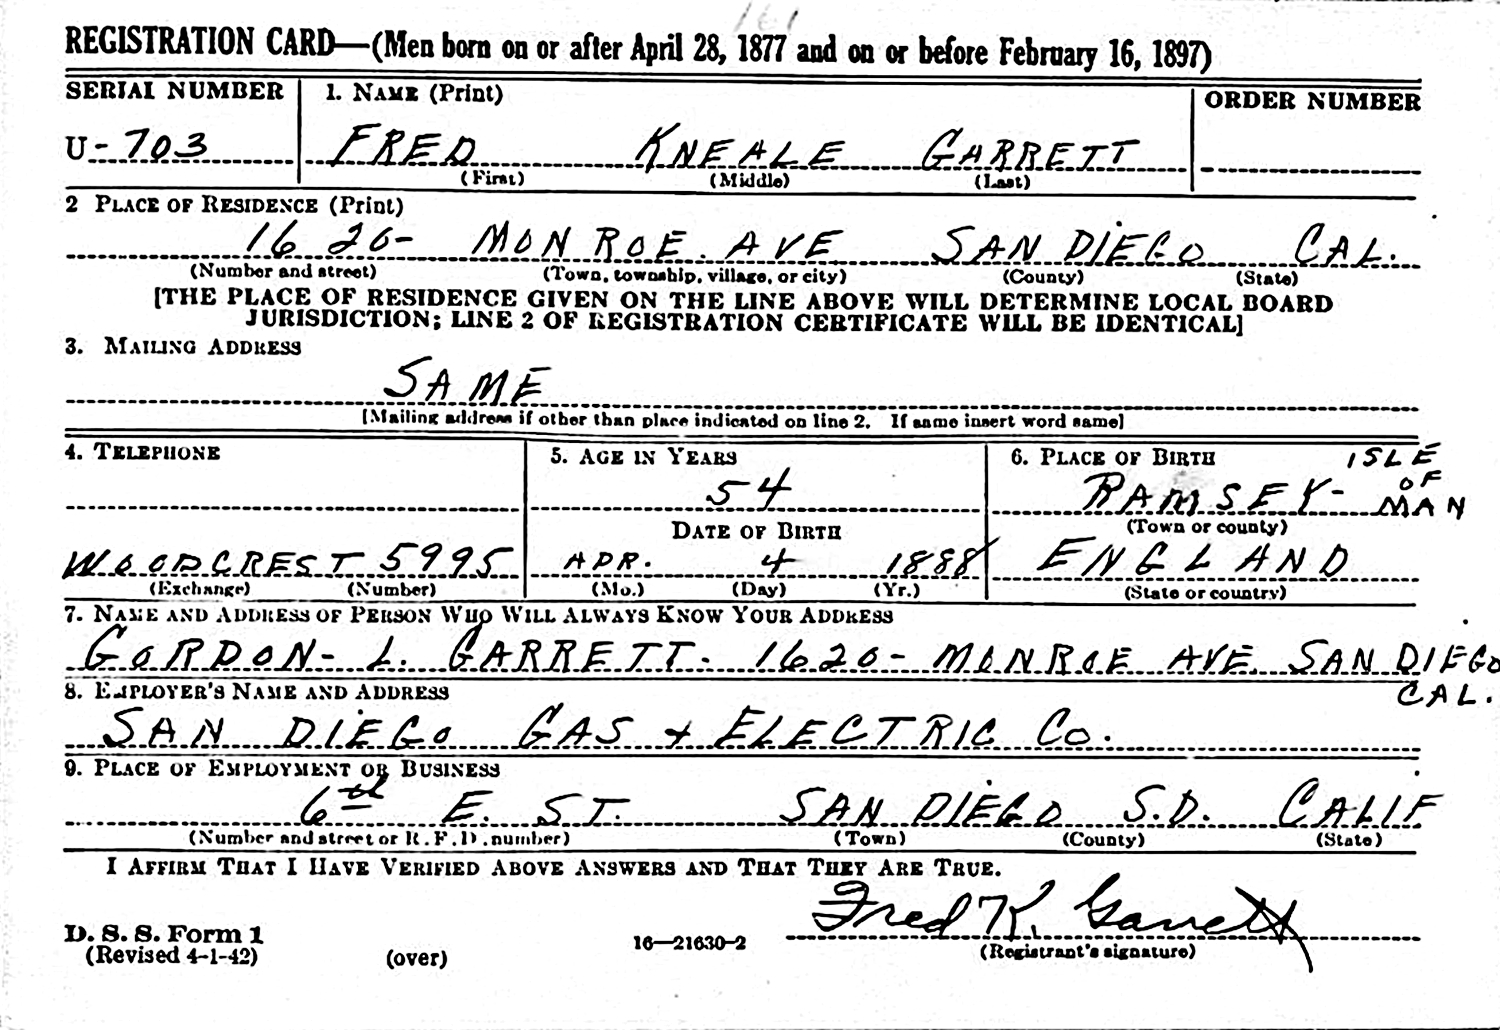 REGISTRATION CARD—(Men born on or after April 28, 1877 and on or before February 16, 1897)
SERIAL NUMBER 1. NAME (Print) ORDER NUMBER
U-703 FRED KNEALE GARRETT
(First) (Middle) (Last)
2 PLACE OF RESIDENCE (Print)
1620- MONROE. AVE SAN DIEGO CAL.
(Number and street) (Town, township, village, or city) (County) (State)
[THE PLACE OF RESIDENCE GIVEN ON THE LINE ABOVE WILL DETERMINE LOCAL BOARD
JURISDICTION; LINE 2 OF REGISTRATION CERTIFICATE WILL BE IDENTICAL]
3. MAILING ADDRESS
SAME
[Mailing address if other than place indicated on line 2. If same insert word same]
4. TELEPHONE 5. AGE IN YEARS 6. PLACE OF BIRTH ISLE
54 RAMSEY- OF MAN
DATE OF BIRTH (Town or county)
WOODCREST 5995 APR. 4 1888 ENGLAND
(Exchange) (Number) (Mo.) (Day) (Yr.) (State or country)
7. NAME AND ADDRESS OF PERSON WHO WILL ALWAYS KNOW YOUR ADDRESS
GORDON- L. GARRETT. 1620- MONROE AVE. SAN DIEGO
8. EMPLOYER'S NAME AND ADDRESS CAL.
SAN DIEGO GAS + ELECTRIC CO.
9. PLACE OF EMPLOYMENT OR BUSINESS
6th E. ST. SAN DIEGO S.D. CALIF
(Number and street or R. F. D. number) (Town) (County) (State)
I AFFIRM THAT I HAVE VERIFIED ABOVE ANSWERS AND THAT THEY ARE TRUE.
Fred K. Garrett
D. S. S. Form 1 16—21630-2 (Registrant's signature)
(Revised 4-1-42) (over)